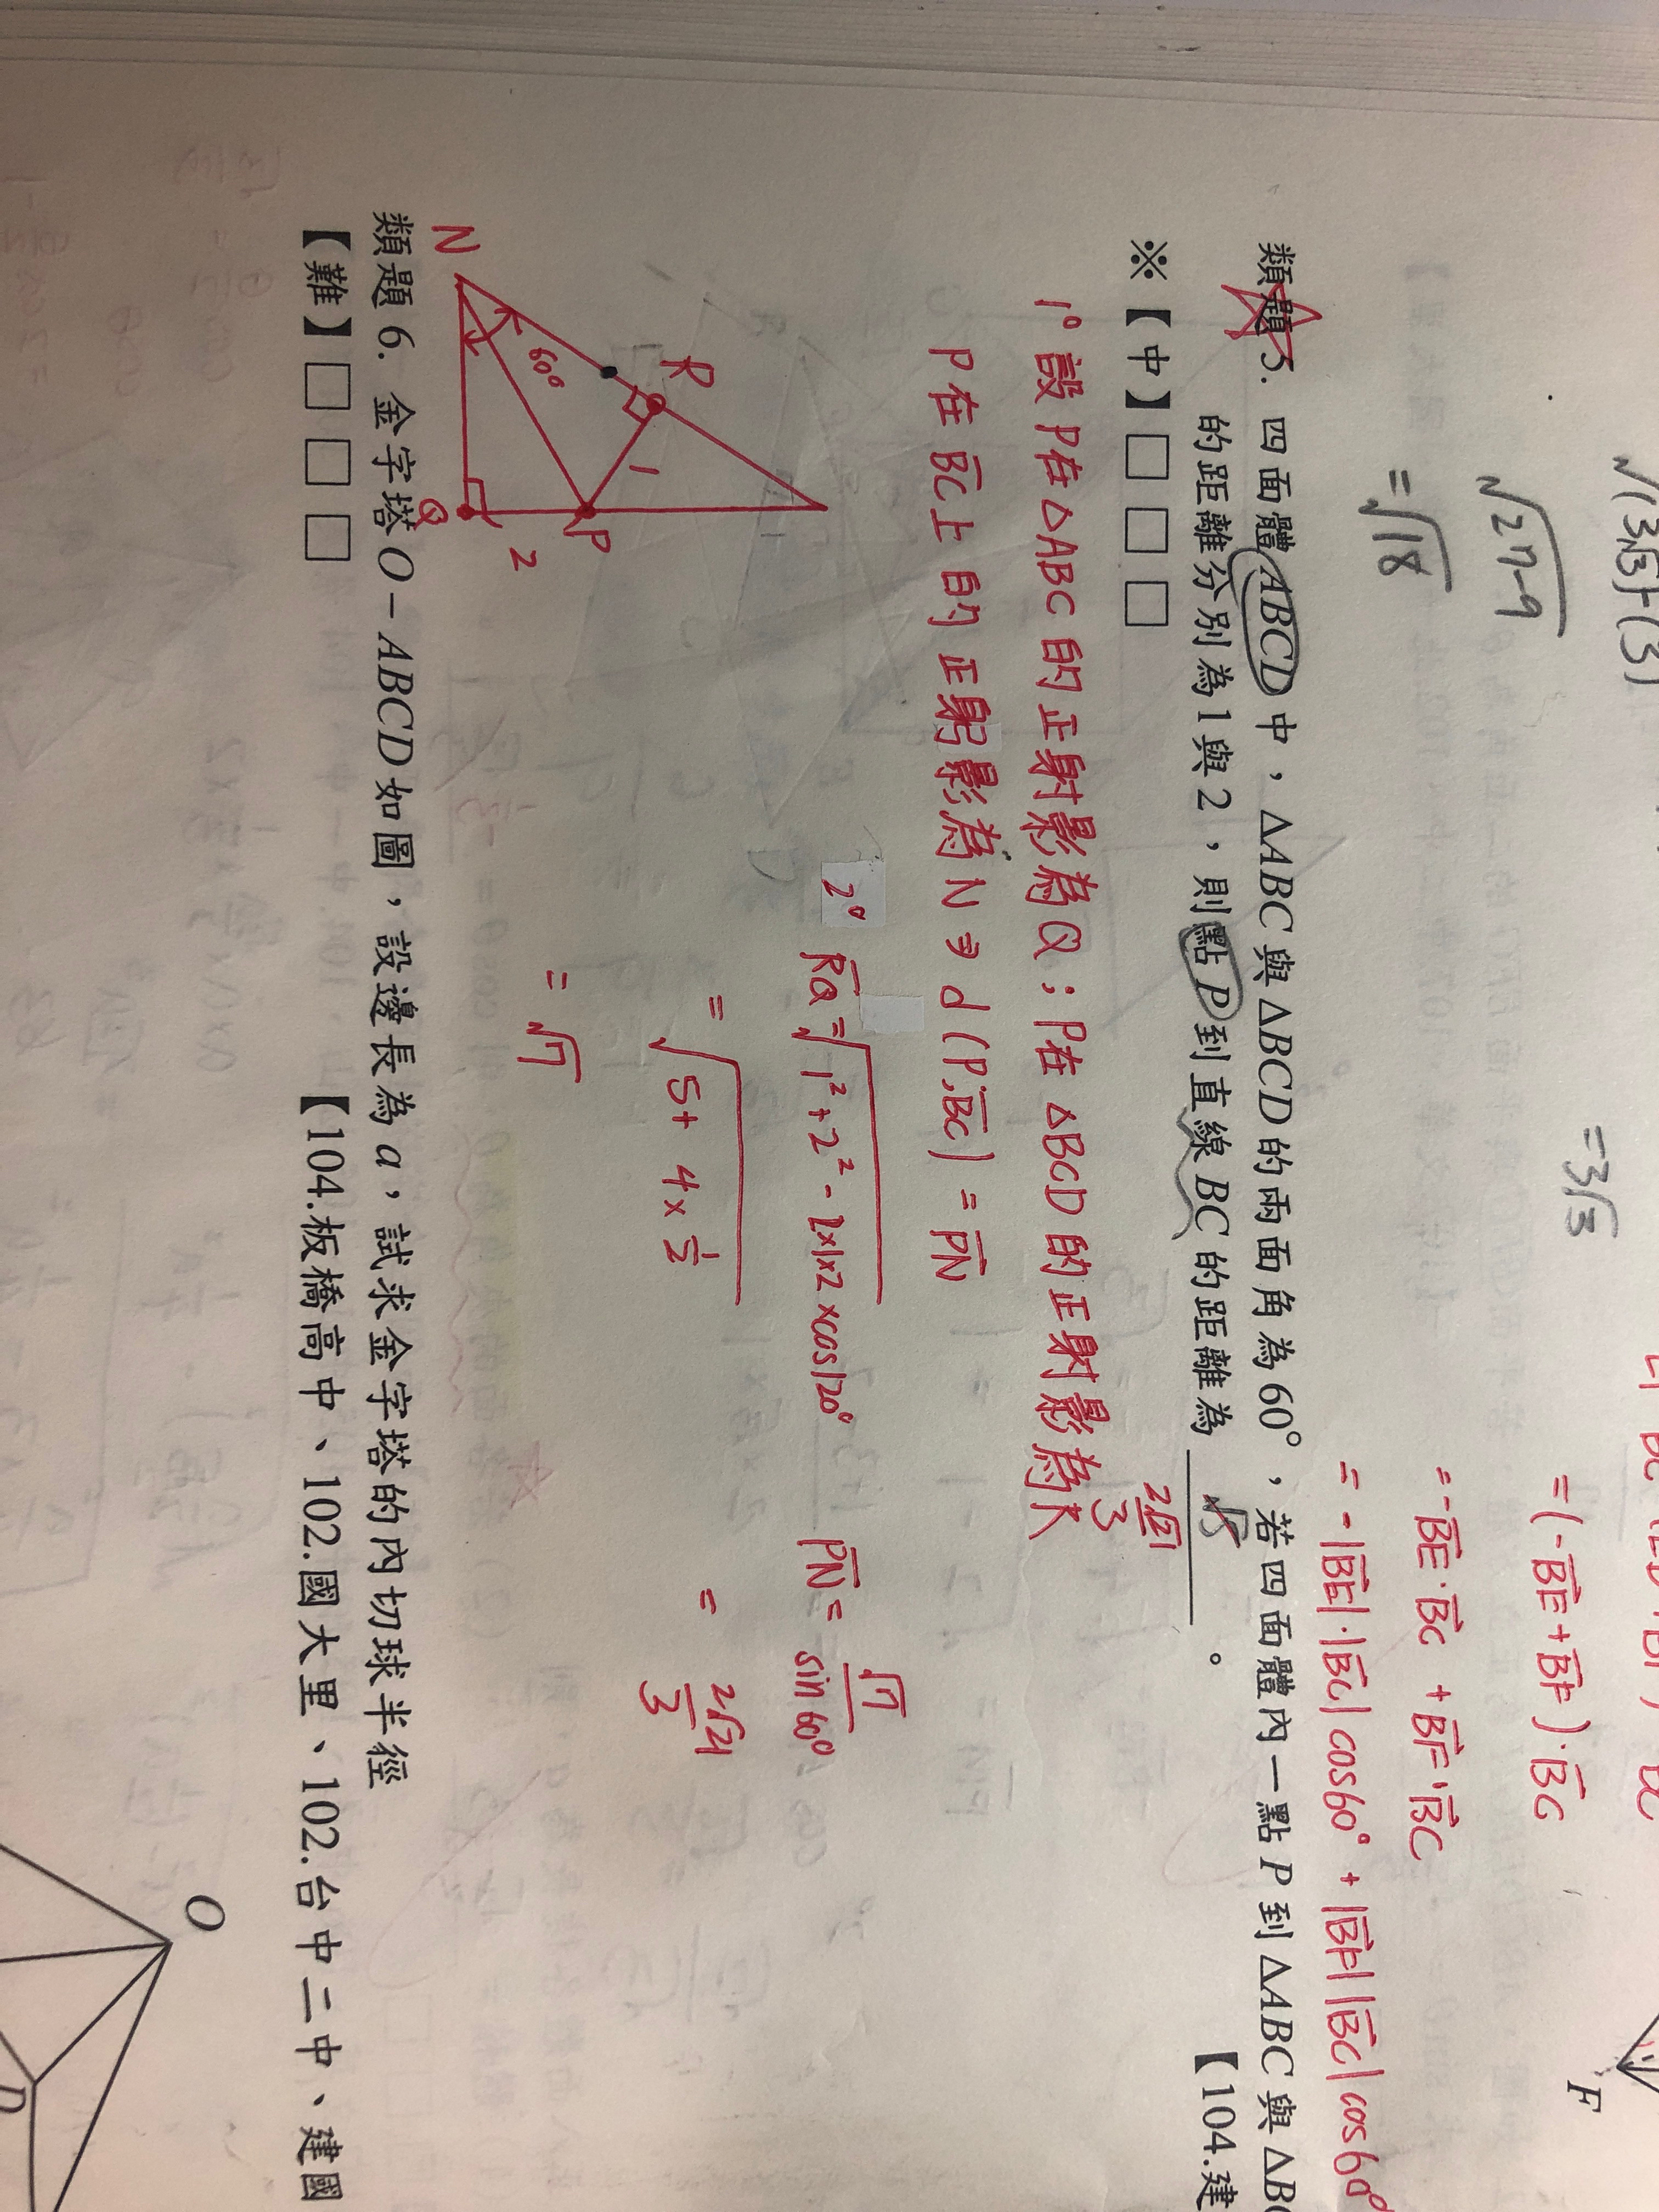 √(3√3)-(3)
√27-9
=√18
=3√3
=(-BE+BF)·BC
=-BE·BC+BF·BC
=-|BE|·|BC|cos60°+|BF||BC|cos60°
F
類題5. 四面體ABCD中，△ABC與△BCD的兩面角為60°，若四面體內一點P到△ABC與△BC
的距離分別為1與2，則點P到直線BC的距離為 √3 2√21/3 。 【104.建
※【中】□□□
1° 設P在△ABC的正射影為Q；P在△BCD的正射影為R
P在BC上的正射影為N ⇒ d(P,BC)=PN
2° RQ=√1²+2²-2×1×2×cos120° PN=√7/sin60°
=√5+4×1/2 =2√21/3
=√7
N 60° R 1 P 2 Q
類題6. 金字塔O－ABCD如圖，設邊長為a，試求金字塔的內切球半徑
【難】□□□ 【104.板橋高中、102.國大里、102.台中二中、建國
O
D